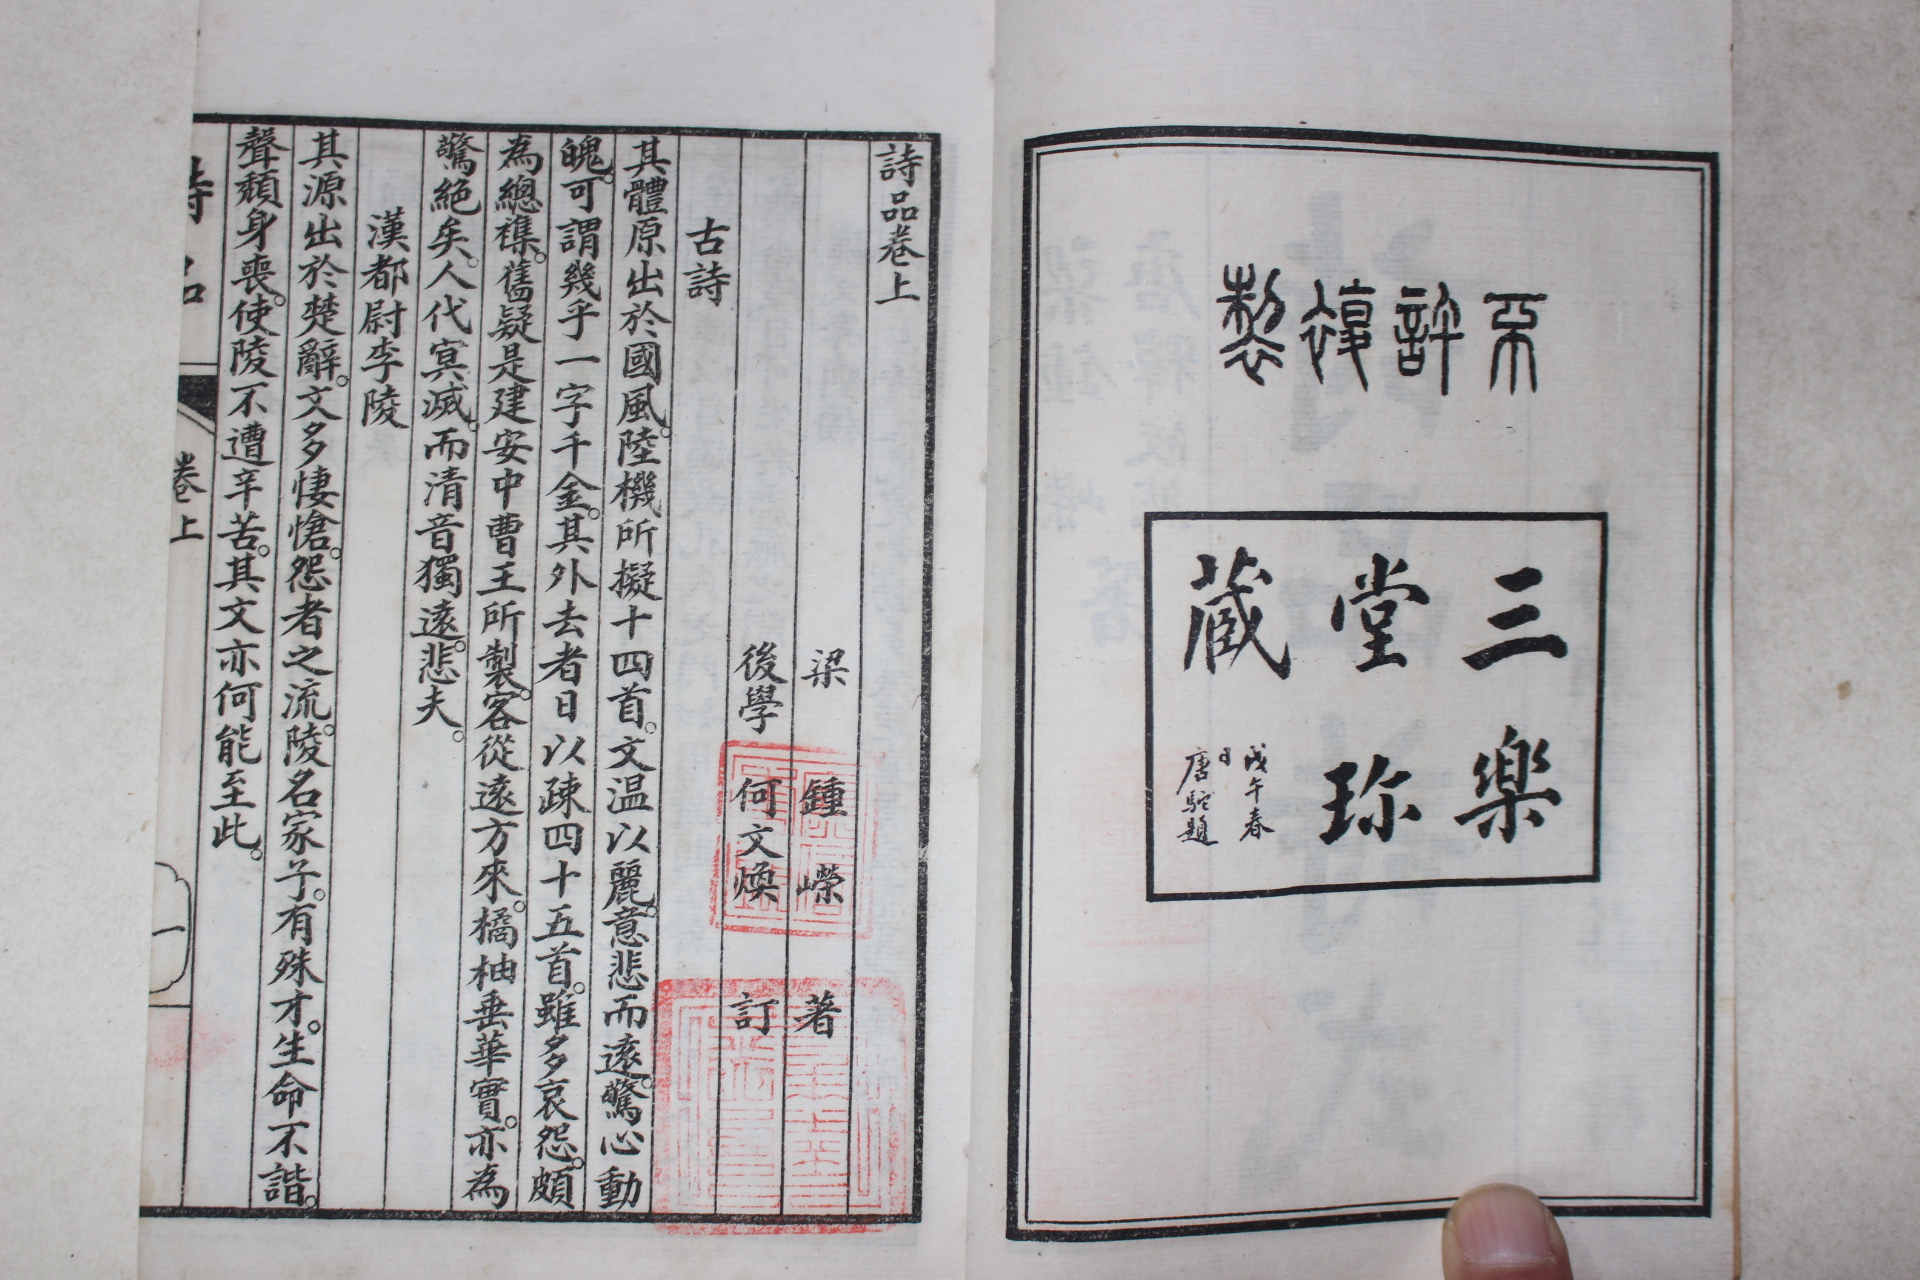 不許複製
三樂
堂珎
蔵
戊午春
日
唐駝題
詩品卷上
梁 鍾嶸 著
後學 何文煥 訂
古詩
其體原出於國風。陸機所擬十四首。文温以麗。意悲而遠。驚心動
魄。可謂幾乎一字千金。其外去者日以疎四十五首。雖多哀怨。頗
為總襍。舊疑是建安中曹王所製。客從遠方來。橘柚垂華實。亦為
驚絕矣。人代冥滅。而清音獨遠。悲夫。
漢都尉李陵
其源出於楚辭。文多悽愴。怨者之流。陵名家子。有殊才。生命不諧。
聲頹身喪。使陵不遭辛苦。其文亦何能至此。
詩品
卷上
一